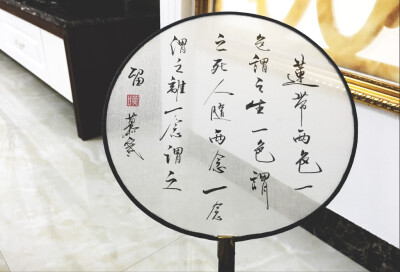 蓮带两色一
色謂之生一色謂
之死人隨两念一念
謂之離一念謂之
留
慕